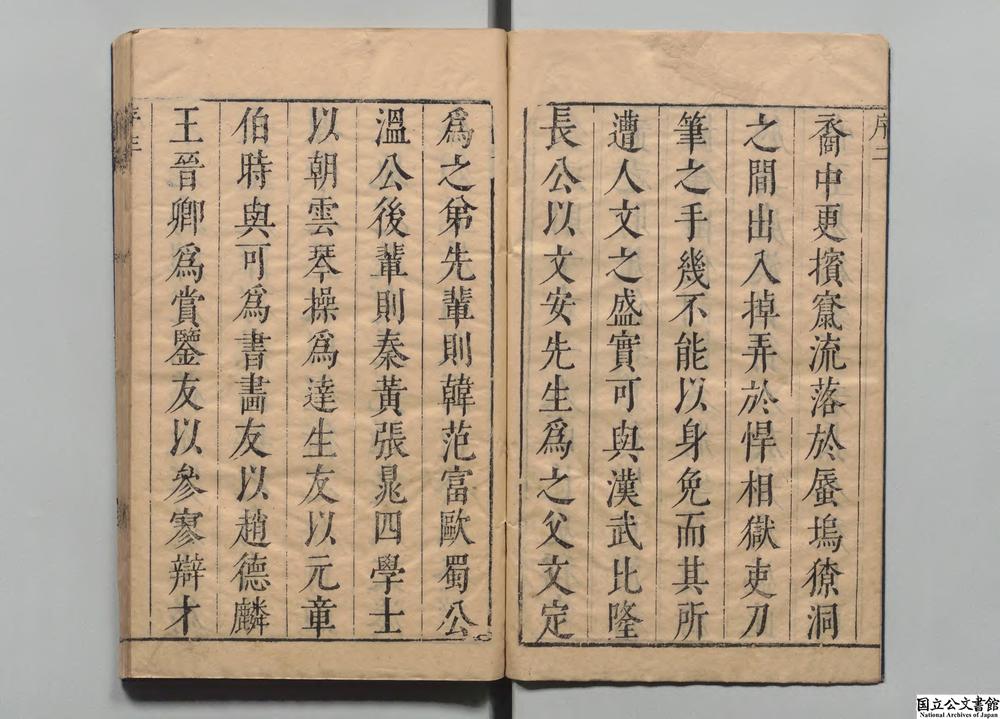 序二
裔中更擯竄流落於蜑塢獠洞
之間出入掉弄於悍相獄吏刀
筆之手幾不能以身免而其所
遭人文之盛實可與漢武比隆
長公以文安先生爲之父文定
爲之弟先輩則韓范富歐蜀公
溫公後輩則秦黃張晁四學士
以朝雲琴操爲達生友以元章
伯時與可爲書畫友以趙德麟
王晉卿爲賞鑒友以參寥辯才
序三
国立公文書館
National Archives of Japan